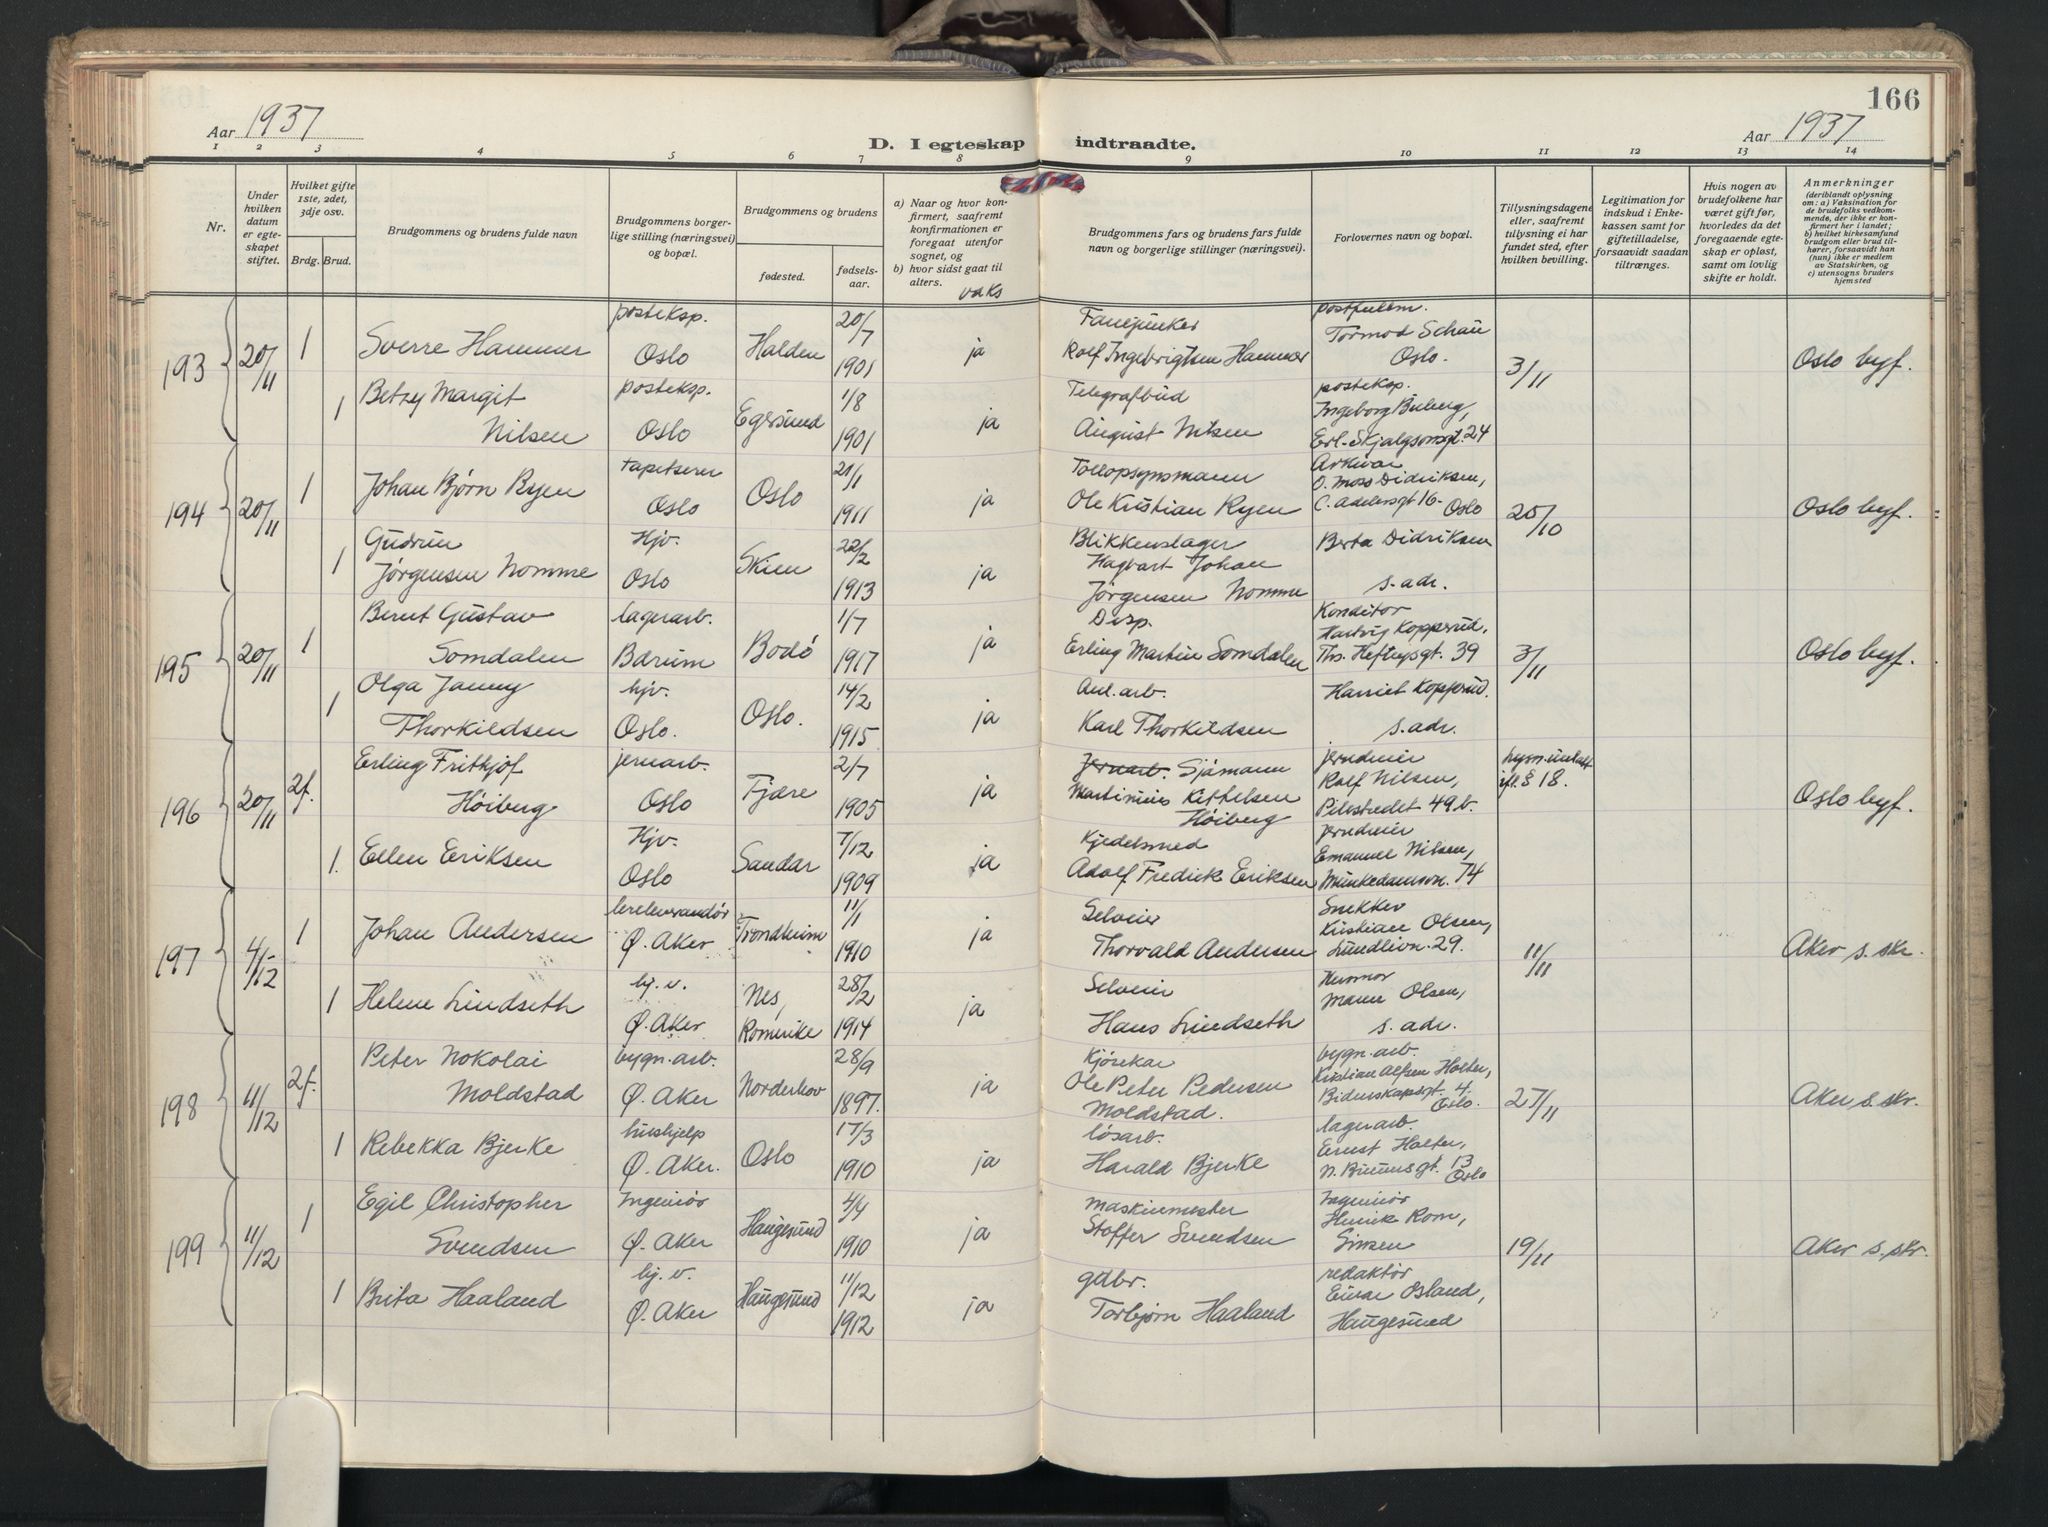 166
Aar 1937
D. I egteskap indtraadte.
Aar 1937
1 2 3 4 5 6 7 8 9 10 11 12 13 14
Nr.
Under hvilken datum er egteskapet stiftet.
Hvilket gifte 1ste, 2det, 3dje osv.
Brdg. Brud.
Brudgommens og brudens fulde navn
Brudgommens borgerlige stilling (næringsvei) og bopæl.
Brudgommens og brudens
fødested.
fødselsaar.
a) Naar og hvor konfirmert, saafremt konfirmationen er foregaat utenfor sognet, og
b) hvor sidst gaat til alters.
vaks
Brudgommens fars og brudens fars fulde navn og borgerlige stillinger (næringsvei).
Forlovernes navn og bopæl.
Tillysningsdagene eller, saafremt tillysning ei har fundet sted, efter hvilken bevilling.
Legitimation for indskud i Enkekassen samt for giftetilladelse, forsaavidt saadan tiltrænges.
Hvis nogen av brudefolkene har været gift før, hvorledes da det foregaaende egteskap er opløst, samt om lovlig skifte er holdt.
Anmerkninger
(deriblandt oplysning om: a) Vaksination for de brudefolks vedkommende, der ikke er konfirmert her i landet; b) hvilket kirkesamfund brudgom eller brud tilhører, forsaavidt han (hun) ikke er medlem av Statskirken, og c) utensogns bruders hjemsted
193 20/11 1 Sverre Hammer posteksp. Oslo Halden 20/7 1901 ja
Fanejunker
Rolf Ingebrigtsen Hammer
Tormod Schau
Oslo.
3/11 Oslo byf.
1 Betzy Margit
Nilsen
posteksp. Oslo Egersund 1/8 1901 ja
Telegrafbud
August Nilsen
posteksp.
Ingeborg
Erl. Skjalgsonsgt. 24
194 20/11 1 Johan Bjørn Ryen tapetserer Oslo Oslo 21/1 1911 ja
Tollopsynsmann
Ole Kristian Ryen
Arkivar
O. Moss Didriksen,
C. Adelersgt 16 - Oslo
20/10 Oslo byf.
1 Gudrun
Jørgensen Nomme
Hjv. Oslo Skien 22/2 1913 ja
Blikkenslager
Hagbart Johan
Jørgensen Nomme
Berta Didriksen
s. adr.
195 20/11 1 Bernt Gustav
Somdalen
lagerarb. Bærum Bodø 1/7 1917 ja
Disp.
Erling Martin Somdalen
Konditor
Hartvig Kopperud,
Ths. Heftyesgt. 39
3/11 Oslo byf.
1 Olga Janny
Thorkildsen
hjv. Oslo. Oslo. 14/2 1915 ja
Anl. arb.
Karl Thorkildsen
Harriet Kopperud.
s. adr.
196 20/11 2f. Erling Fritkjof
Høiberg
jernarb. Oslo Fjære 2/7 1905 ja
Jernarb. Sjømann
Martinius Kittelsen
Høiberg
jerndreier
Rolf Nilsen,
Pilestredet 49.b.
ifl. § 18.
Oslo byf.
1. Ellen Eriksen Hjv. Oslo Sandar 7/12 1909 ja
Kjedelsmed
Adolf Fredrik Eriksen
jerndreier
Emanuel Nilsen,
Munkedamsvn. 74
197 4/12 1 Johan Andersen Ø. Aker Trondheim 11/1 1910 ja
Selveier
Thorvald Andersen
Snekker
Kristian Olsen,
Lundlivn. 29.
11/11 Aker s. skr.
1 Helene Lindseth hj. v. Ø. Aker Nes, Romerike 28/2 1914 ja
Selveier
Hans Lindseth
Husmor
Olsen,
s. adr.
198 11/12 2f. Peter Nokolai
Moldstad
bygn. arb. Ø. Aker Norderhov 28/9 1897. ja
Kjørekar
Ole Peter Pedersen
Moldstad.
bygn. arb.
Kristian Alfsen Holter,
Bidenskapsgt. 4.
Oslo.
27/11 Aker s. skr.
1 Rebekka Bjerke hushjelp Ø. Aker. Oslo 17/3 1910 ja
løsarb.
Harald Bjerke
lagerarb.
Ernst Holter,
13
Oslo
199 11/12 1 Egil Christopher
Svendsen
Ingeniør Ø. Aker Haugesund 4/4 1910 ja
Maskinmester
Stoffer Svendsen
Ingeniør
Henrik Rom,
Sinsen
19/11 Aker s. skr.
1 Brita Haaland hj. v. Ø. Aker Haugesund 11/12 1912 ja
gdbr.
Torbjørn Haaland
redaktør
Einar Osland,
Haugesund